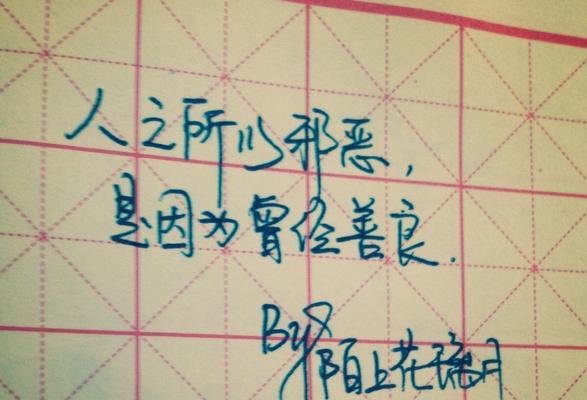 人之所以邪恶,
是因为曾经善良.
By 陌上花瑶月